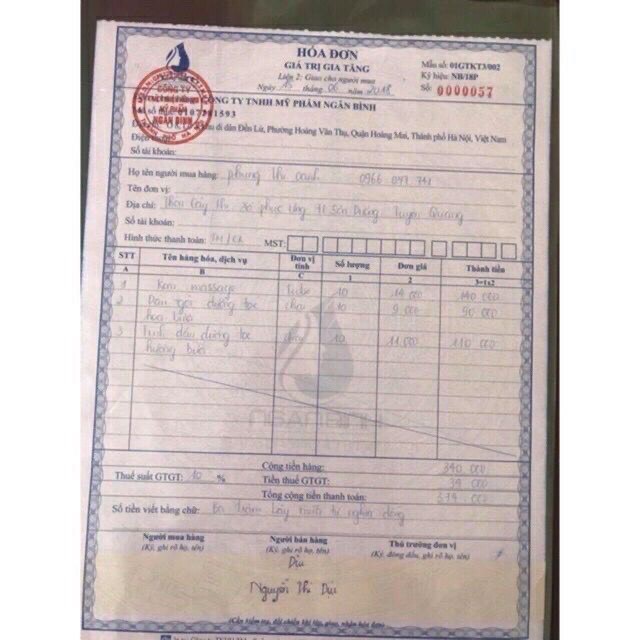 HÓA ĐƠN
GIÁ TRỊ GIA TĂNG
Liên 2: Giao cho người mua
Ngày 15 tháng 06 năm 2018
Mẫu số: 01GTKT3/002
Ký hiệu: NB/18P
Số: 0000057
CÔNG TY TNHH MỸ PHẨM NGÂN BÌNH
CÔNG TY
MỸ PHẨM
NGÂN BÌNH
di dân Đền Lừ, Phường Hoàng Văn Thụ, Quận Hoàng Mai, Thành phố Hà Nội, Việt Nam
Số tài khoản:
Họ tên người mua hàng: Phùng Thị Oanh 0966 047 741
Tên đơn vị:
Địa chỉ: Thôn Cây xã Phúc Ứng H Sơn Dương Tuyên Quang
Số tài khoản:
Hình thức thanh toán: TM/CK MST:
STT Tên hàng hóa, dịch vụ Đơn vị tính Số lượng Đơn giá Thành tiền
A B C 1 2 3=1x2
1 Kem massage tube 10 14 000 140 000
2 Dầu gội dưỡng tóc chai 10 9 000 90 000
hoa bưởi
3 Tinh dầu dưỡng tóc chai 10 11.000 110 000
hương bưởi
NGANBINH
Cộng tiền hàng: 340 000
Thuế suất GTGT: 10 % Tiền thuế GTGT: 34 000
Tổng cộng tiền thanh toán: 374 000
Số tiền viết bằng chữ: Ba trăm bảy mươi tư nghìn đồng
Người mua hàng Người bán hàng Thủ trưởng đơn vị
(Ký, ghi rõ họ, tên) (Ký, ghi rõ họ, tên) (Ký, đóng dấu, ghi rõ họ, tên)
Dịu
Nguyễn Thị Dịu
(Cần kiểm tra, đối chiếu khi lập, giao, nhận hóa đơn)